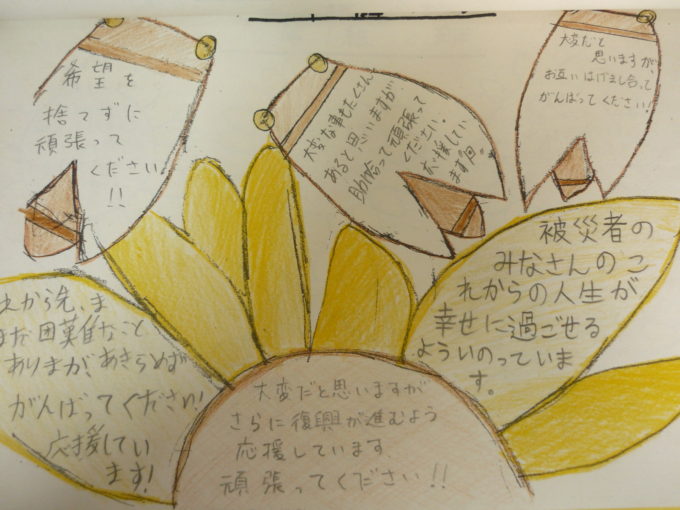 希望を
捨てずに
頑張って
ください
!!
大変な事もたくさん
あると思いますが
助け合って頑張って
ください。
応援してい
ます
大変だと
思いますが、
お互いはげまし合って
がんばってください!
えから先、ま
まだ困難なこと
ありまが、あきらめず
がんばってください!
応援してい
ます!
大変だと思いますが
さらに復興が進むよう
応援しています
頑張ってください!!
被災者の
みなさんのこ
れからの人生が
幸せに過ごせる
よういのっていま
す。